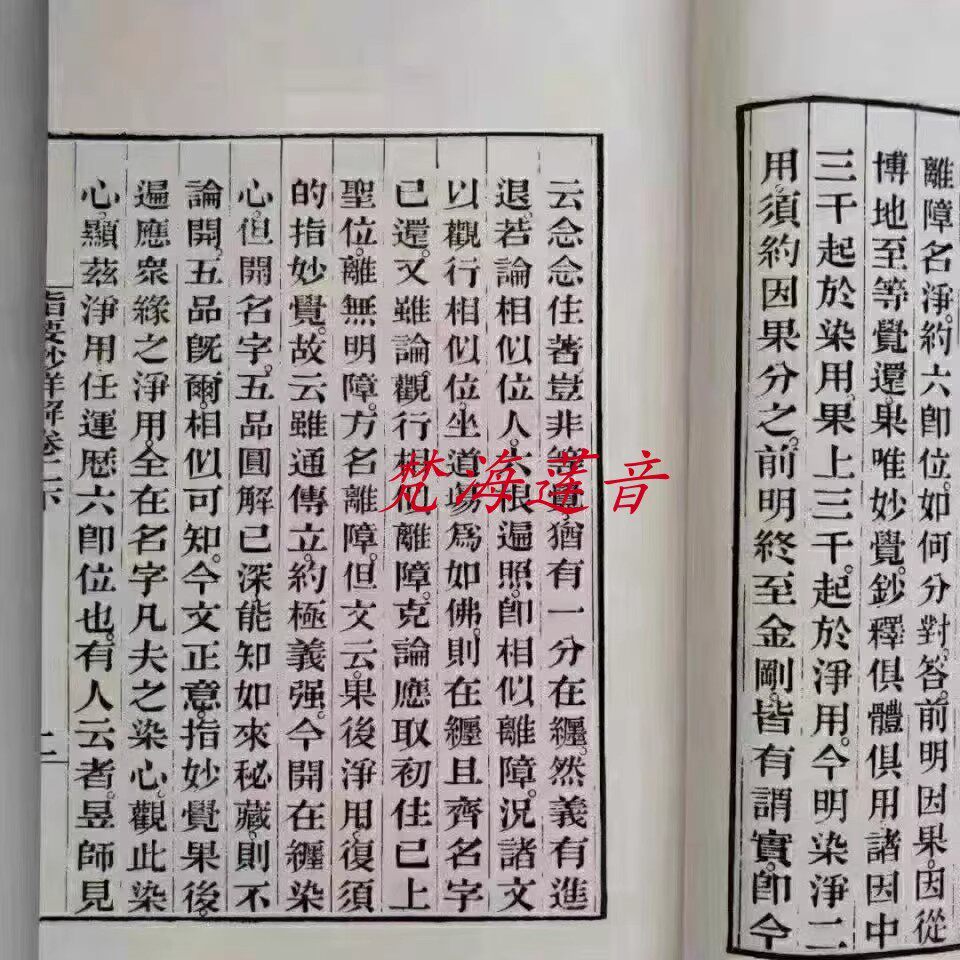 離障名淨。約六卽位。如何分對。答。前明因果。因從
博地至等覺還。果唯妙覺。鈔釋俱體俱用。諸因中
三千起於染用。果上三千。起於淨用。今明染淨二
用。須約因果分之。前明終至金剛。皆有謂實。卽今
云念念住著。豈非等覺。猶有一分在纏。然義有進
退。若論相似位人。六根遍照。卽相似離障。況諸文
以觀行相似位。坐道場爲如佛。則在纏且齊名字
已還。又雖論觀行相似離障。克論應取初住已上
聖位。離無明障。方名離障。但文云。果後淨用。復須
的指妙覺。故云雖通傳立。約極義强。今開在纏染
心。但開名字。五品圓解已深。能知如來秘藏。則不
論開。五品旣爾。相似可知。今文正意。指妙覺果後。
遍應衆緣之淨用。全在名字凡夫之染心。觀此染
心。顯茲淨用任運歷六卽位也。有人云者。昱師見
指要鈔詳解卷二下
二
梵海蓮音